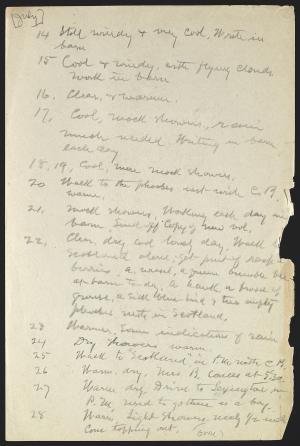 [July]
14 Still windy & very cool. Write in
barn
15 Cool & windy, with flying clouds
Work in barn
16. Clear, & warmer.
17, Cool, mock showers, rain
much needed. Writing in barn
each day
18, 19, Cool, more mock showers,
20 Walk to the phoebes nest with C.B.
warm,
21, mock showers, Working each day in
barn. Send off copy of new vol,
22, Clear, dry cool lovely day, Walk to
Scotland alone; Get pint of rasp
berries, a wood, a queen bumble bee
at barn to-day, a hawk a brood of
grouse, a blue bird & two empty
phoebe nests in Scotland.
23 Warmer, Some indication of rain
24 Dry showers warm
25 Walk to "Scotland" in P.M. with C.B.
26 Warm, dry, Miss B. comes at 5:30.
27 Warm dry. Drive to Lexington in
P.M. used to go there as a boy.
28 Warm, Light showers, early
Corn topping out, (over)